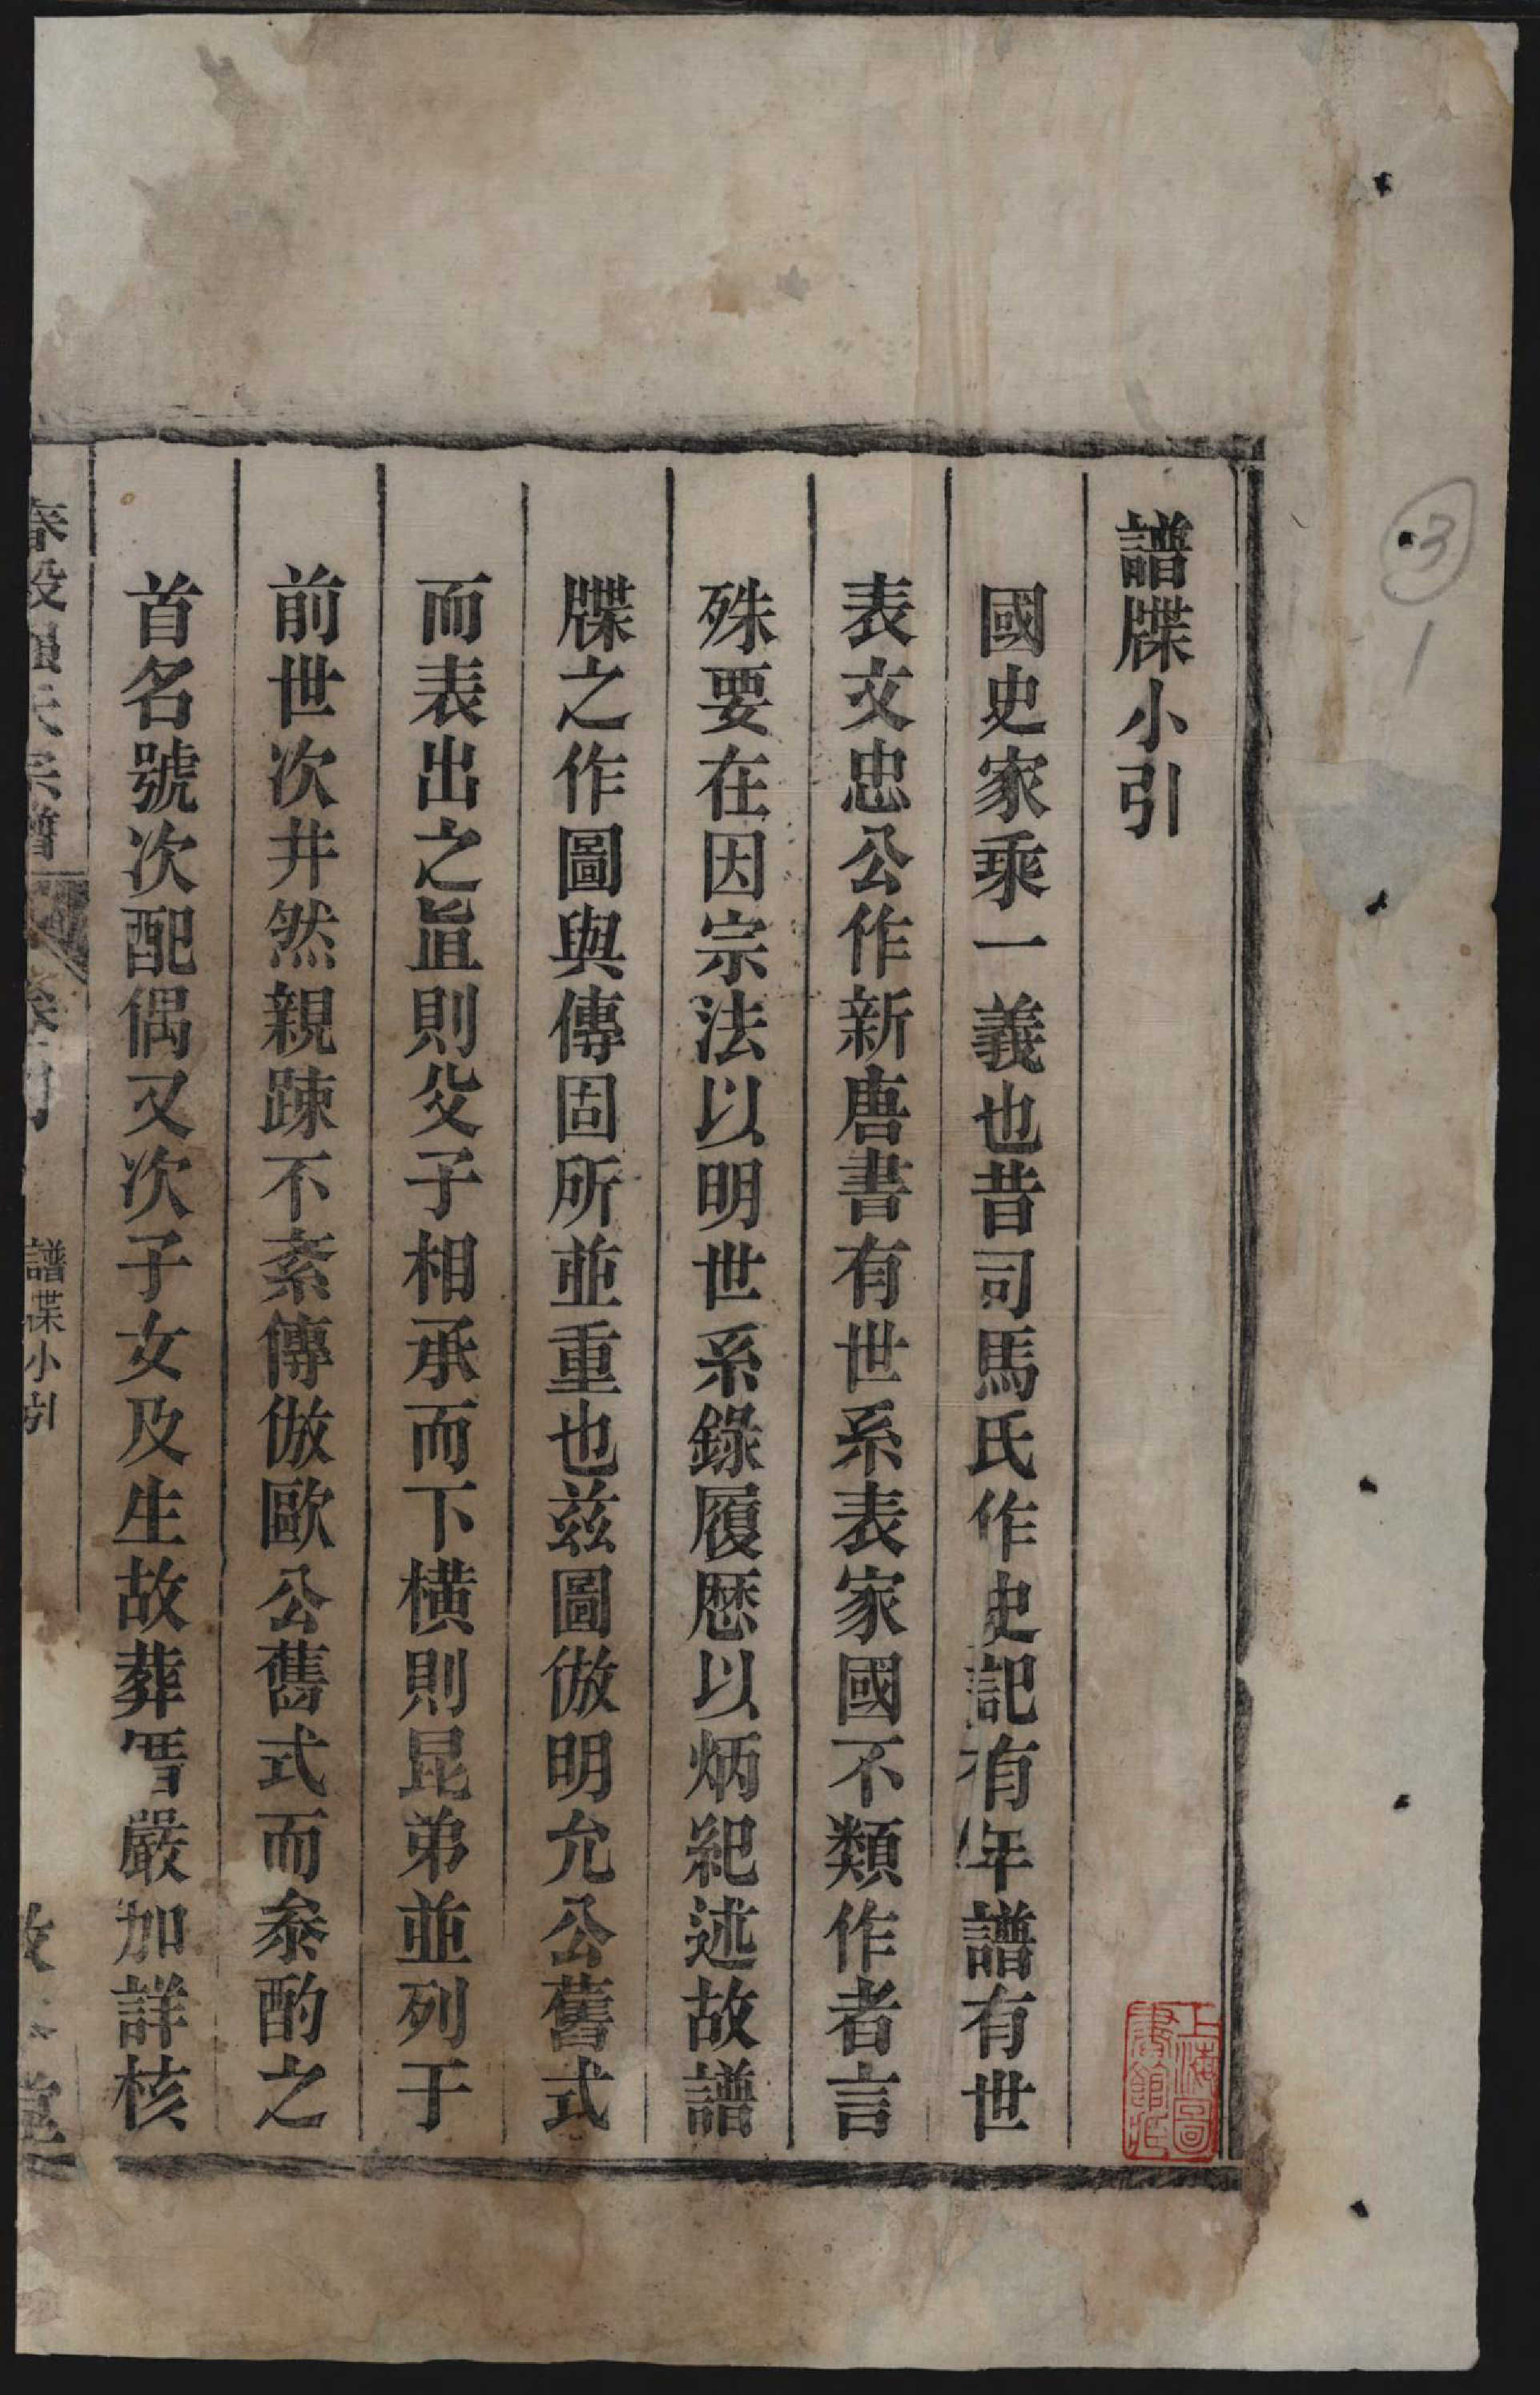 譜牒小引
國史家乘一義也昔司馬氏作史記有年譜有世
表文忠公作新唐書有世系表家國不類作者言
殊要在因宗法以明世系錄履歷以炳紀述故譜
牒之作圖與傳固所並重也兹圖倣明允公舊式
而表出之旨則父子相承而下橫則昆弟並列于
前世次井然親疎不紊傳倣歐公舊式而叅酌之
首名號次配偶又次子女及生故葬厝嚴加詳核
氏宗譜
譜諜小引
上海圖書館藏
3
1